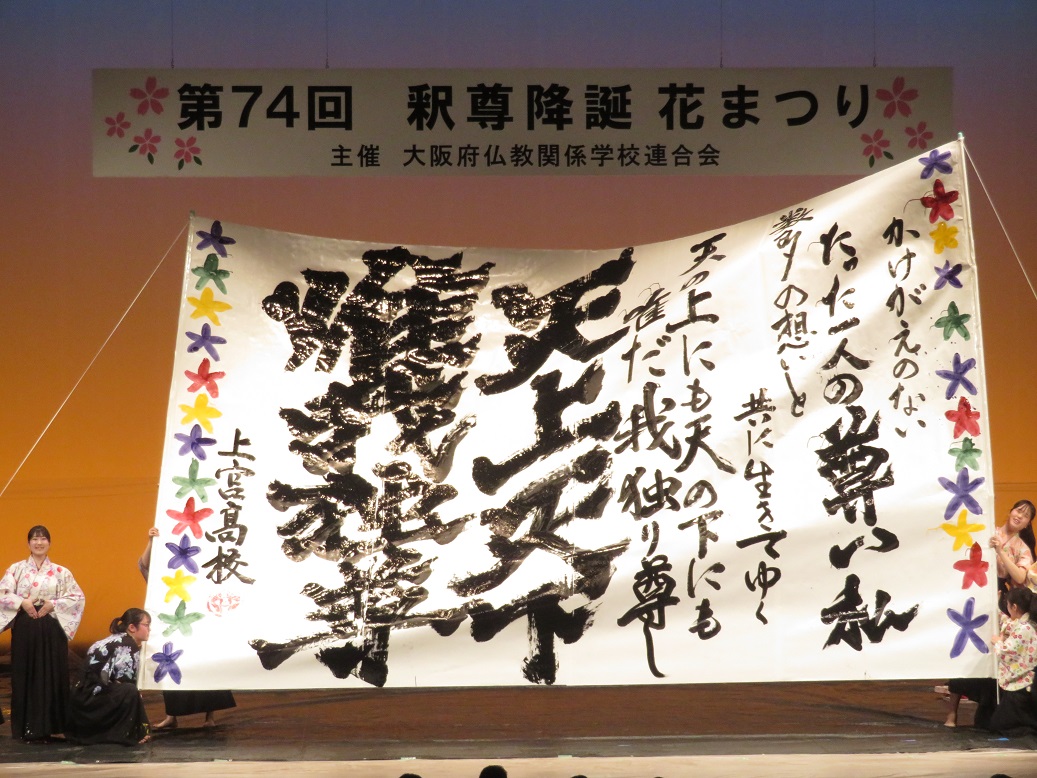 第74回 釈尊降誕 花まつり
主催 大阪府仏教関係学校連合会
かけがえのない
たった一人の尊い私
数多の想いと
共に生きてゆく
天の上にも天の下にも
唯だ我独り尊し
天上天下
唯我独尊
上宮高校